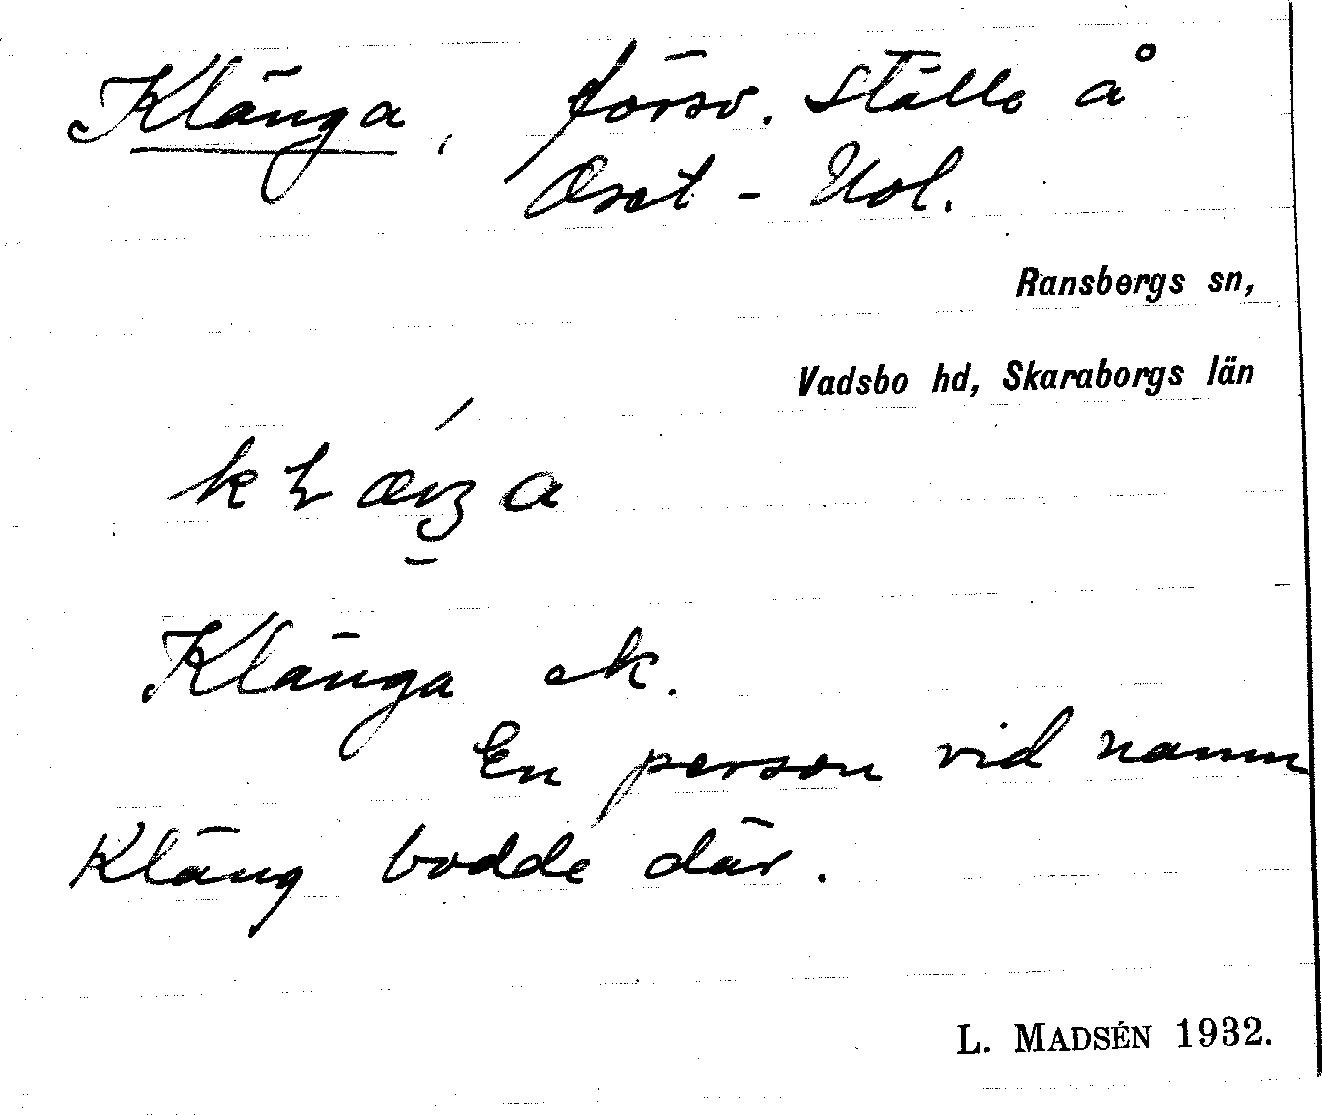 Klänga, försv. Ställe å
Öset - Uol.
Ransbergs sn,
Vadsbo hd, Skaraborgs län
Klänga ek.
En person vid namn
Kläng bodde där.
L. MADSÉN 1932.